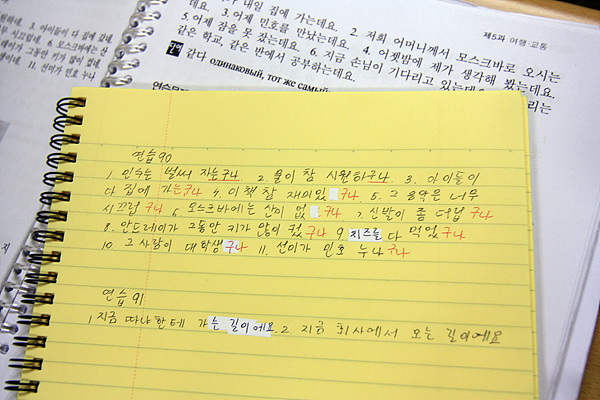 제5과 여행·교통
내일 집에 가는데요. 2. 저희 어머니께서 모스크바로 오시는
데요. 3. 어제 민호를 만났는데요. 4. 어젯밤에 제가 생각해 봤는데요.
5. 어제 잠을 못 잤는데요. 6. 지금 손님이 기다리고 있는데요.
같은 학교, 같은 반에서 공부하는데요.
같다 одинаковый, тот же самый
3. 아이들이 다 집에 갔네.
6. 모스크바에는 산
이가 그동안 키가 많이 컸네.
11. 선이가 민호 누나
연습90
1. 민수는 벌써 자는구나 2. 물이 참 시원하구나. 3. 아이들이
다 집에 가는구나 4. 이 책 참 재미있 구나 5. 그 음악은 너무
시끄럽구나 6. 모스크바에는 산이 없 구나 7. 신발이 좀 더럽구나
8. 안드레이가 그동안 키가 많이 컸구나 9. 치즈를 다 먹었구나
10. 그 사람이 대학생구나 11. 선이가 민호 누나구나
연습 91
1. 지금 따냐한테 가는 길이에요. 2. 지금 회사에서 오는 길이에요